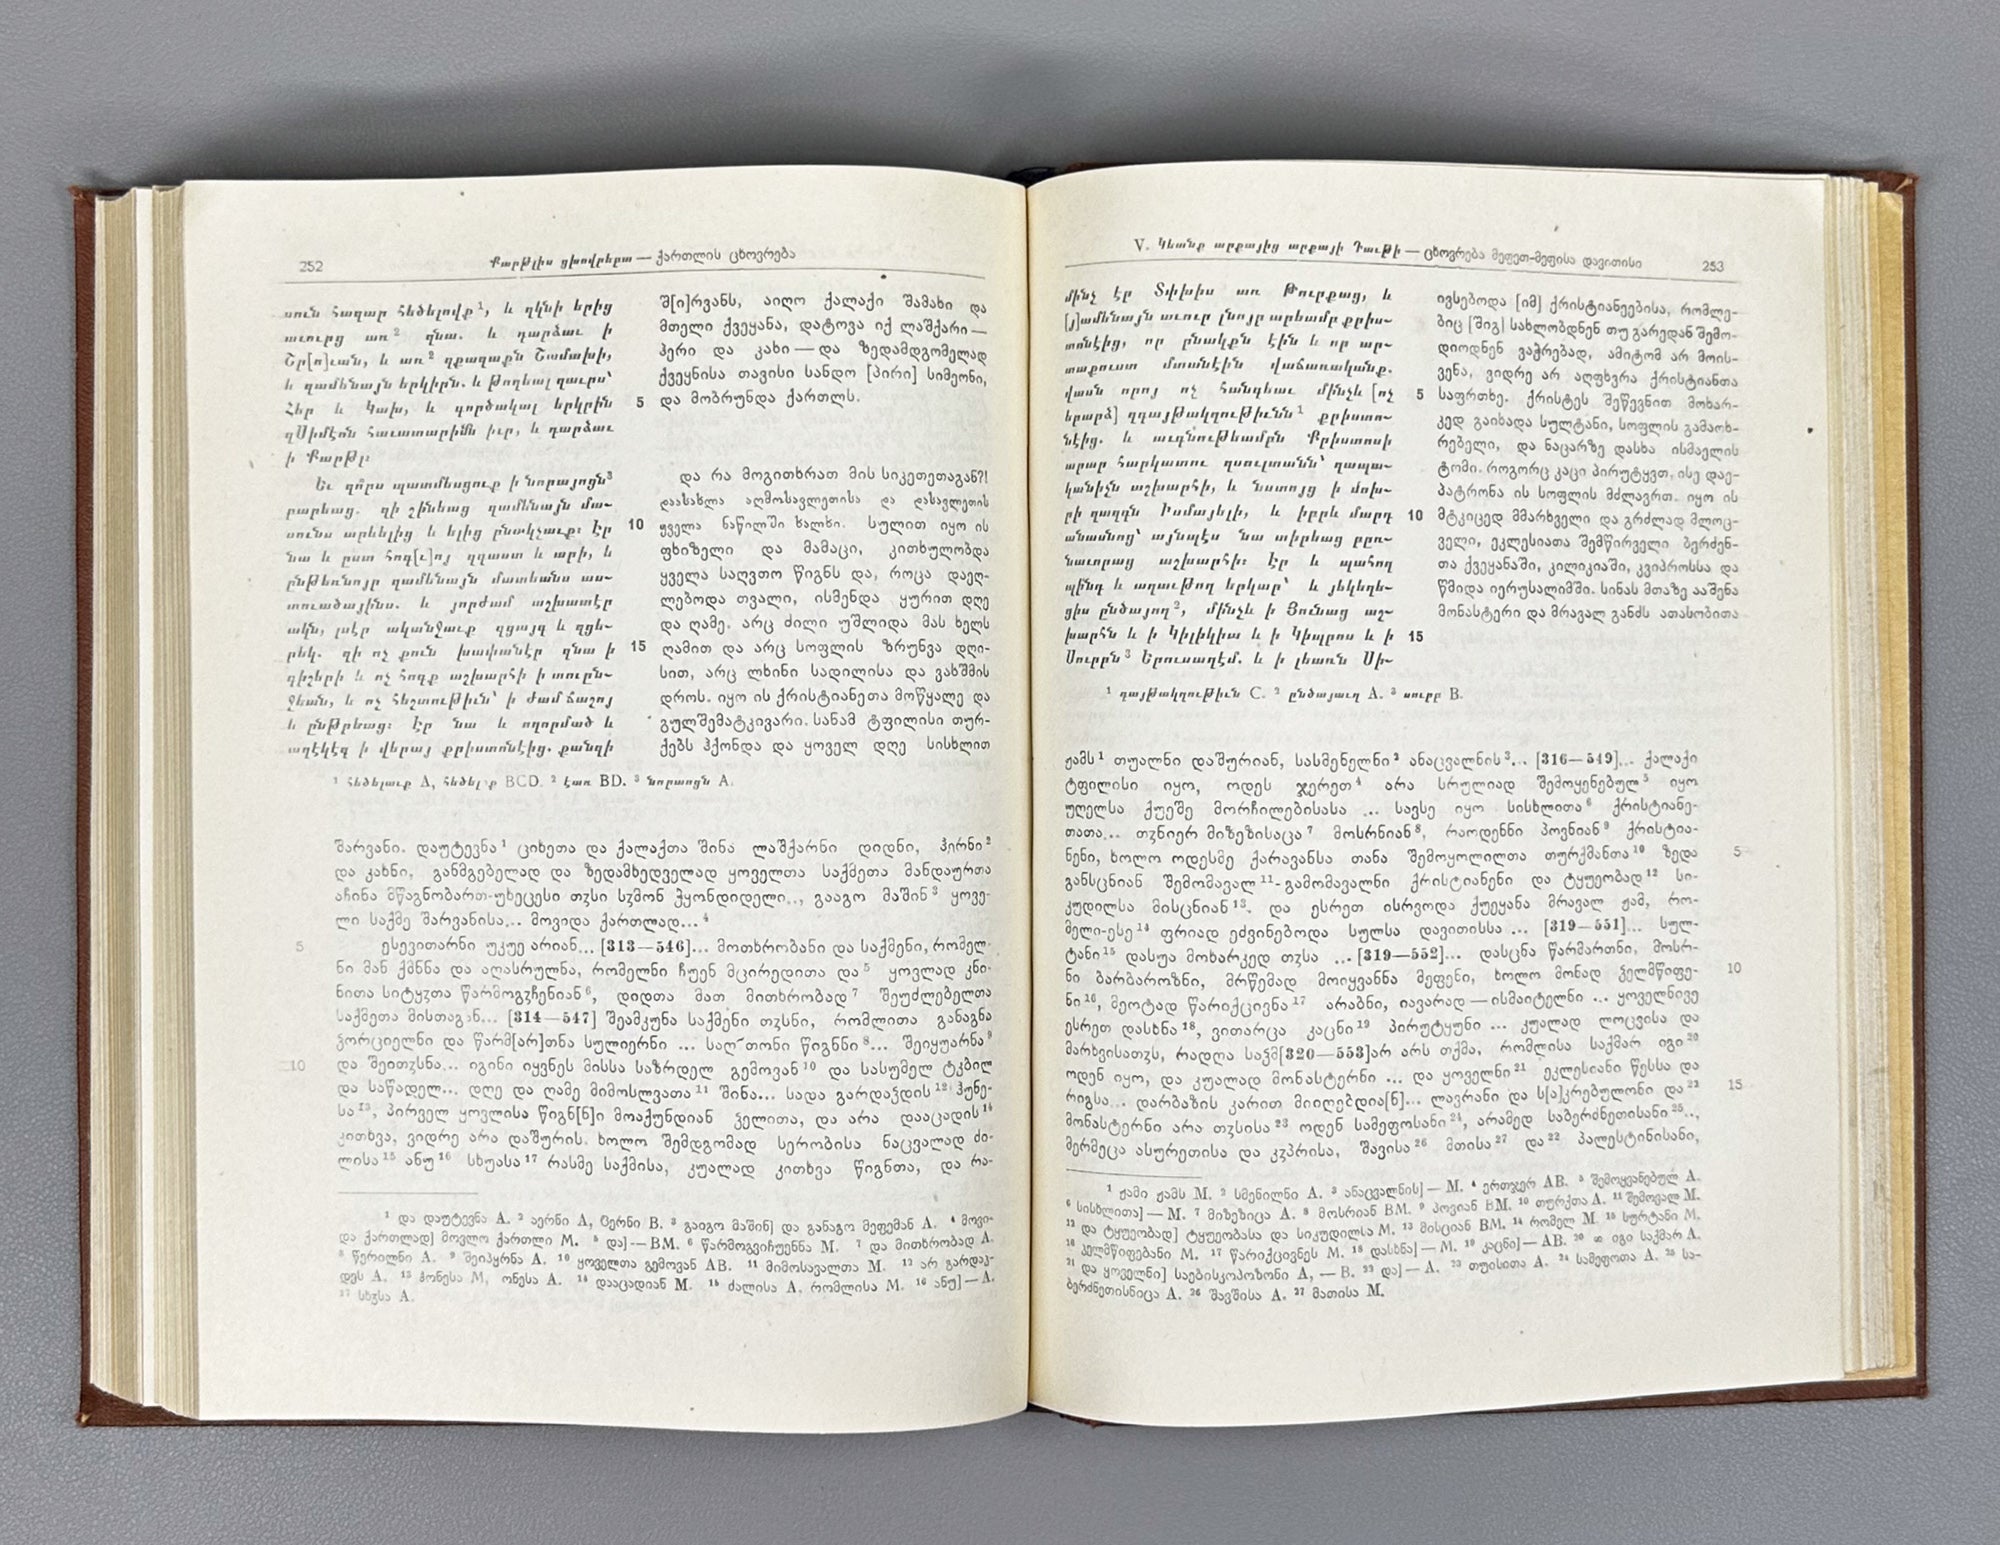 252
Քարթլիս ցխովրեբա — ქართლის ცხოვრება
սուն հազար հեծելովք¹, և ղկնի երից
աւուրց առ² զնա. և դարձաւ ի
Շր[ո]ւան, և առ² զքաղաքն Շամախի,
և զամենայն երկիրն. և թողեալ զաւրս՝
Հեր և Կախ, և գործակալ երկրին
զՍիմէոն հաւատարիմն իւր, և դարձաւ
ի Քարթլ։
Եւ զո՞րս պատմեսցուք ի նորայոցն³
բարեաց. զի շինեաց զամենայն մա-
սունս արևելից և ելից բնակչաւք։ Էր
նա և ըստ հոգ[ւ]ոյ զգաստ և արի, և
ընթեռնոյր զամենայն մատեանս աս-
տուածայինս. և յորժամ աշխատէր
ակն, լսէր ականջաւք զցայգ և զցե-
րեկ. զի ոչ քուն խափանէր զնա ի
գիշերի և ոչ հոգք աշխարհի ի տուըն-
ջեան, և ոչ հեշտութիւն՝ ի ժամ ճաշոյ
և ընթրեաց։ Էր նա և ողորմած և
աղէկէզ ի վերայ քրիստոնէից. քանզի
შ[ი]რვანს, აიღო ქალაქი შამახი და
მთელი ქვეყანა, დატოვა იქ ლაშქარი —
ჰერი და კახი — და ზედამდგომელად
ქვეყნისა თავისი სანდო [პირი] სიმეონი,
5 და მობრუნდა ქართლს.
და რა მოგითხრათ მის სიკეთეთაგან?!
დაასახლა აღმოსავლეთისა და დასავლეთის
10 ყველა ნაწილში ხალხი. სულით იყო ის
ფხიზელი და მამაცი, კითხულობდა
ყველა საღვთო წიგნს და, როცა დაეღ-
ლებოდა თვალი, ისმენდა ყურით დღე
და ღამე. არც ძილი უშლიდა მას ხელს
15 ღამით და არც სოფლის ზრუნვა დღი-
სით, არც ლხინი სადილისა და ვახშმის
დროს. იყო ის ქრისტიანეთა მოწყალე და
გულშემატკივარი. სანამ ტფილისი თურ-
ქებს ჰქონდა და ყოველ დღე სისხლით
¹ հեծելաւք A, հեծել ք BCD. ² էառ BD. ³ նորաոցն A.
შარვანი. დაუტევნა¹ ციხეთა და ქალაქთა შინა ლაშქარნი დიდნი, ჰერნი²
და კახნი, განმგებელად და ზედამხედველად ყოველთა საქმეთა მანდაურთა
აჩინა მწაგნობართ-უხუცესი თჳსი სჳმონ ჭყონდიდელი.., გააგო მაშინ³ ყოვე-
ლი საქმე შარვანისა... მოვიდა ქართლად...⁴
5 ესევითარნი უკუე არიან... [313—546]... მოთხრობანი და საქმენი, რომელ-
ნი მან ქმნნა და აღასრულნა, რომელნი ჩუენ მცირედითა და⁵ ყოვლად კნი-
ნითა სიტყჳთა წარმოგჳჩენიან⁶, დიდთა მათ მითხრობად⁷ შეუძლებელთა
საქმეთა მისთაგან... [314—547] შეამკუნა საქმენი თჳსნი, რომლითა განაგნა
ჴორციელნი და წარმ[არ]თნა სულიერნი ... საღ~თონი წიგნნი⁸... შეიყუარნა⁹
10 და შეითჳსნა... იგინი იყვნეს მისსა საზრდელ გემოვან¹⁰ და სასუმელ ტკბილ
და საწადელ... დღე და ღამე მიმოსლვათა¹¹ შინა... სადა გარდაჴდის¹² ჰუნე-
სა¹³, პირველ ყოვლისა წიგნ[ნ]ი მოაქუნდიან ჴელითა, და არა დააცადის¹⁴
კითხვა, ვიდრე არა დაშურის. ხოლო შემდგომად სერობისა ნაცვალად ძი-
ლისა¹⁵ ანუ¹⁶ სხუასა¹⁷ რასმე საქმისა, კუალად კითხვა წიგნთა, და რა-
¹ და დაუტევნა A. ² აერნი A, ცერნი B. ³ გაიგო მაშინ] და განაგო მეფემან A. ⁴ მოვი-
და ქართლად] მოვლო ქართლი M. ⁵ და] — BM. ⁶ წარმოგვიჩუენნა M. ⁷ და მითხრობად A.
⁸ წერილნი A. ⁹ შეიპყრნა A. ¹⁰ ყოველთა გემოვან AB. ¹¹ მიმოსავალთა M. ¹² არ გარდაჴ-
დეს A. ¹³ ჰონესა M, ონესა A. ¹⁴ დააცადიან M. ¹⁵ ძალისა A, რომლისა M. ¹⁶ ანუ] — A.
¹⁷ სხჳსა A.
V. Կեանք արքայից արքայի Դաւթի — ცხოვრება მეფეთ-მეფისა დავითისი
253
մինչ էր Տփխիս առ Թուրքաց, և
[յ]ամենայն աւուր լնոյր արեամբ քրիս-
տոնէից, որ բնակքն էին և որ ար-
տաքուստ մտանէին վաճառականք.
վասն որոյ ոչ հանգեաւ մինչև [ոչ
երարձ] զդայթակղութիւնն¹ քրիստո-
նէից. և աւգնութեամբն Քրիստոսի
արար հարկատու զսուլտանն՝ զապա-
կանիչն աշխարհի, և նստոյց ի մոխ-
րի զազգն Իսմայելի, և իբրև մարդ
անասնոց՝ այնպէս նա տիրեաց բըռ-
նաւորաց աշխարհի։ Էր և պահող
պինդ և աղաւթող երկար՝ և յեկեղե-
ցիս ընծայող², մինչև ի Յունաց աշ-
խարհն և ի Կիլիկիա և ի Կիպրոս և ի
Սուրբն³ Երուսաղէմ. և ի լեառն Սի-
ივსებოდა [იმ] ქრისტიანეებისა, რომლე-
ბიც [შიგ] სახლობდნენ თუ გარედან შემო-
დიოდნენ ვაჭრებად, ამიტომ არ მოის-
ვენა, ვიდრე არ აღფხვრა ქრისტიანთა
5 საფრთხე. ქრისტეს შეწევნით მოხარ-
კედ გაიხადა სულტანი, სოფლის გამაოხ-
რებელი, და ნაცარზე დასხა ისმაელის
ტომი. როგორც კაცი პირუტყვთ, ისე დაე-
პატრონა ის სოფლის მძლავრთ. იყო ის
10 მტკიცედ მმარხველი და გრძლად მლოც-
ველი, ეკლესიათა შემწირველი ბერძენ-
თა ქვეყანაში, კილიკიაში, კვიპროსსა და
წმიდა იერუსალიმში. სინას მთაზე ააშენა
მონასტერი და მრავალ განძს ათასობითა
15
¹ դայթակղութիւն C. ² ընծայաւղ A. ³ սուրբ B.
ჟამს¹ თუალნი დაშურიან, სასმენელნი² ანაცვალნის³... [316—549]... ქალაქი
ტფილისი იყო, ოდეს ჯერეთ⁴ არა სრულიად შემოყენებულ⁵ იყო
უღელსა ქუეშე მორჩილებისასა ... სავსე იყო სისხლითა⁶ ქრისტიანე-
თათა... თჳნიერ მიზეზისაცა⁷ მოსრნიან⁸, რაოდენნი პოვნიან⁹ ქრისტია-
ნენი, ხოლო ოდესმე ქარავანსა თანა შემოყოლილთა თურქმანთა¹⁰ ზედა 5
განსცნიან შემომავალ¹¹-გამომავალნი ქრისტიანენი და ტყუეობად¹² სი-
კუდილსა მისცნიან¹³. და ესრეთ ისრვოდა ქუეყანა მრავალ ჟამ, რო-
მელი-ესე¹⁴ ფრიად ეძვინებოდა სულსა დავითისსა ... [319—551]... სულ-
ტანი¹⁵ დასუა მოხარკედ თჳსა ... [319—552]... დასცნა წარმართნი, მოსრ-
ნი ბარბაროზნი, მრწემად მოიყვანნა მეფენი, ხოლო მონად ჴელმწიფე- 10
ნი¹⁶, მეოტად წარიქცივნა¹⁷ არაბნი, იავარად — ისმაიტელნი ... ყოველნივე
ესრეთ დასხნა¹⁸, ვითარცა კაცნი¹⁹ პირუტყუნი ... კუალად ლოცვისა და
მარხვისათჳს, რადღა საჴმ[320—553]არ არს თქმა, რომლისა საქმარ იგი²⁰
ოდენ იყო, და კუალად მონასტერნი ... და ყოველნი²¹ ეკლესიანი წესსა და
რიგსა... დარბაზის კარით მიიღებდია[ნ]... ლავრანი და ს[ა]კრებულონი და²² 15
მონასტერნი არა თჳსისა²³ ოდენ სამეფოსანი²⁴, არამედ საბერძნეთისანი²⁵..,
მერმეცა ასურეთისა და კჳპრისა, შავისა²⁶ მთისა²⁷ და²² პალესტინისანი,
¹ ჟამი ჟამს M. ² სმენილნი A. ³ ანაცვალნის] — M. ⁴ ერთჯერ AB. ⁵ შემოყვანებულ A.
⁶ სისხლითა] — M. ⁷ მიზეზიცა A. ⁸ მოსრიან BM. ⁹ პოვიან BM. ¹⁰ თურქთა A. ¹¹ შემოვალ M.
¹² და ტყუეობად] ტყუეობასა და სიკუდილსა M. ¹³ მისციან BM. ¹⁴ რომელ M. ¹⁵ სურტანი M.
¹⁶ ჰელმწიფებანი M. ¹⁷ წარიქცივნეს M. ¹⁸ დასხნა] — M. ¹⁹ კაცნი] — AB. ²⁰ ∞ იგი საქმარ A.
²¹ და ყოველნი] საებისკოპოზონი A, — B. ²² და] — A. ²³ თუისითა A. ²⁴ სამეფოთა A. ²⁵ სა-
ბერძნეთისნიცა A. ²⁶ შავშისა A. ²⁷ მათისა M.